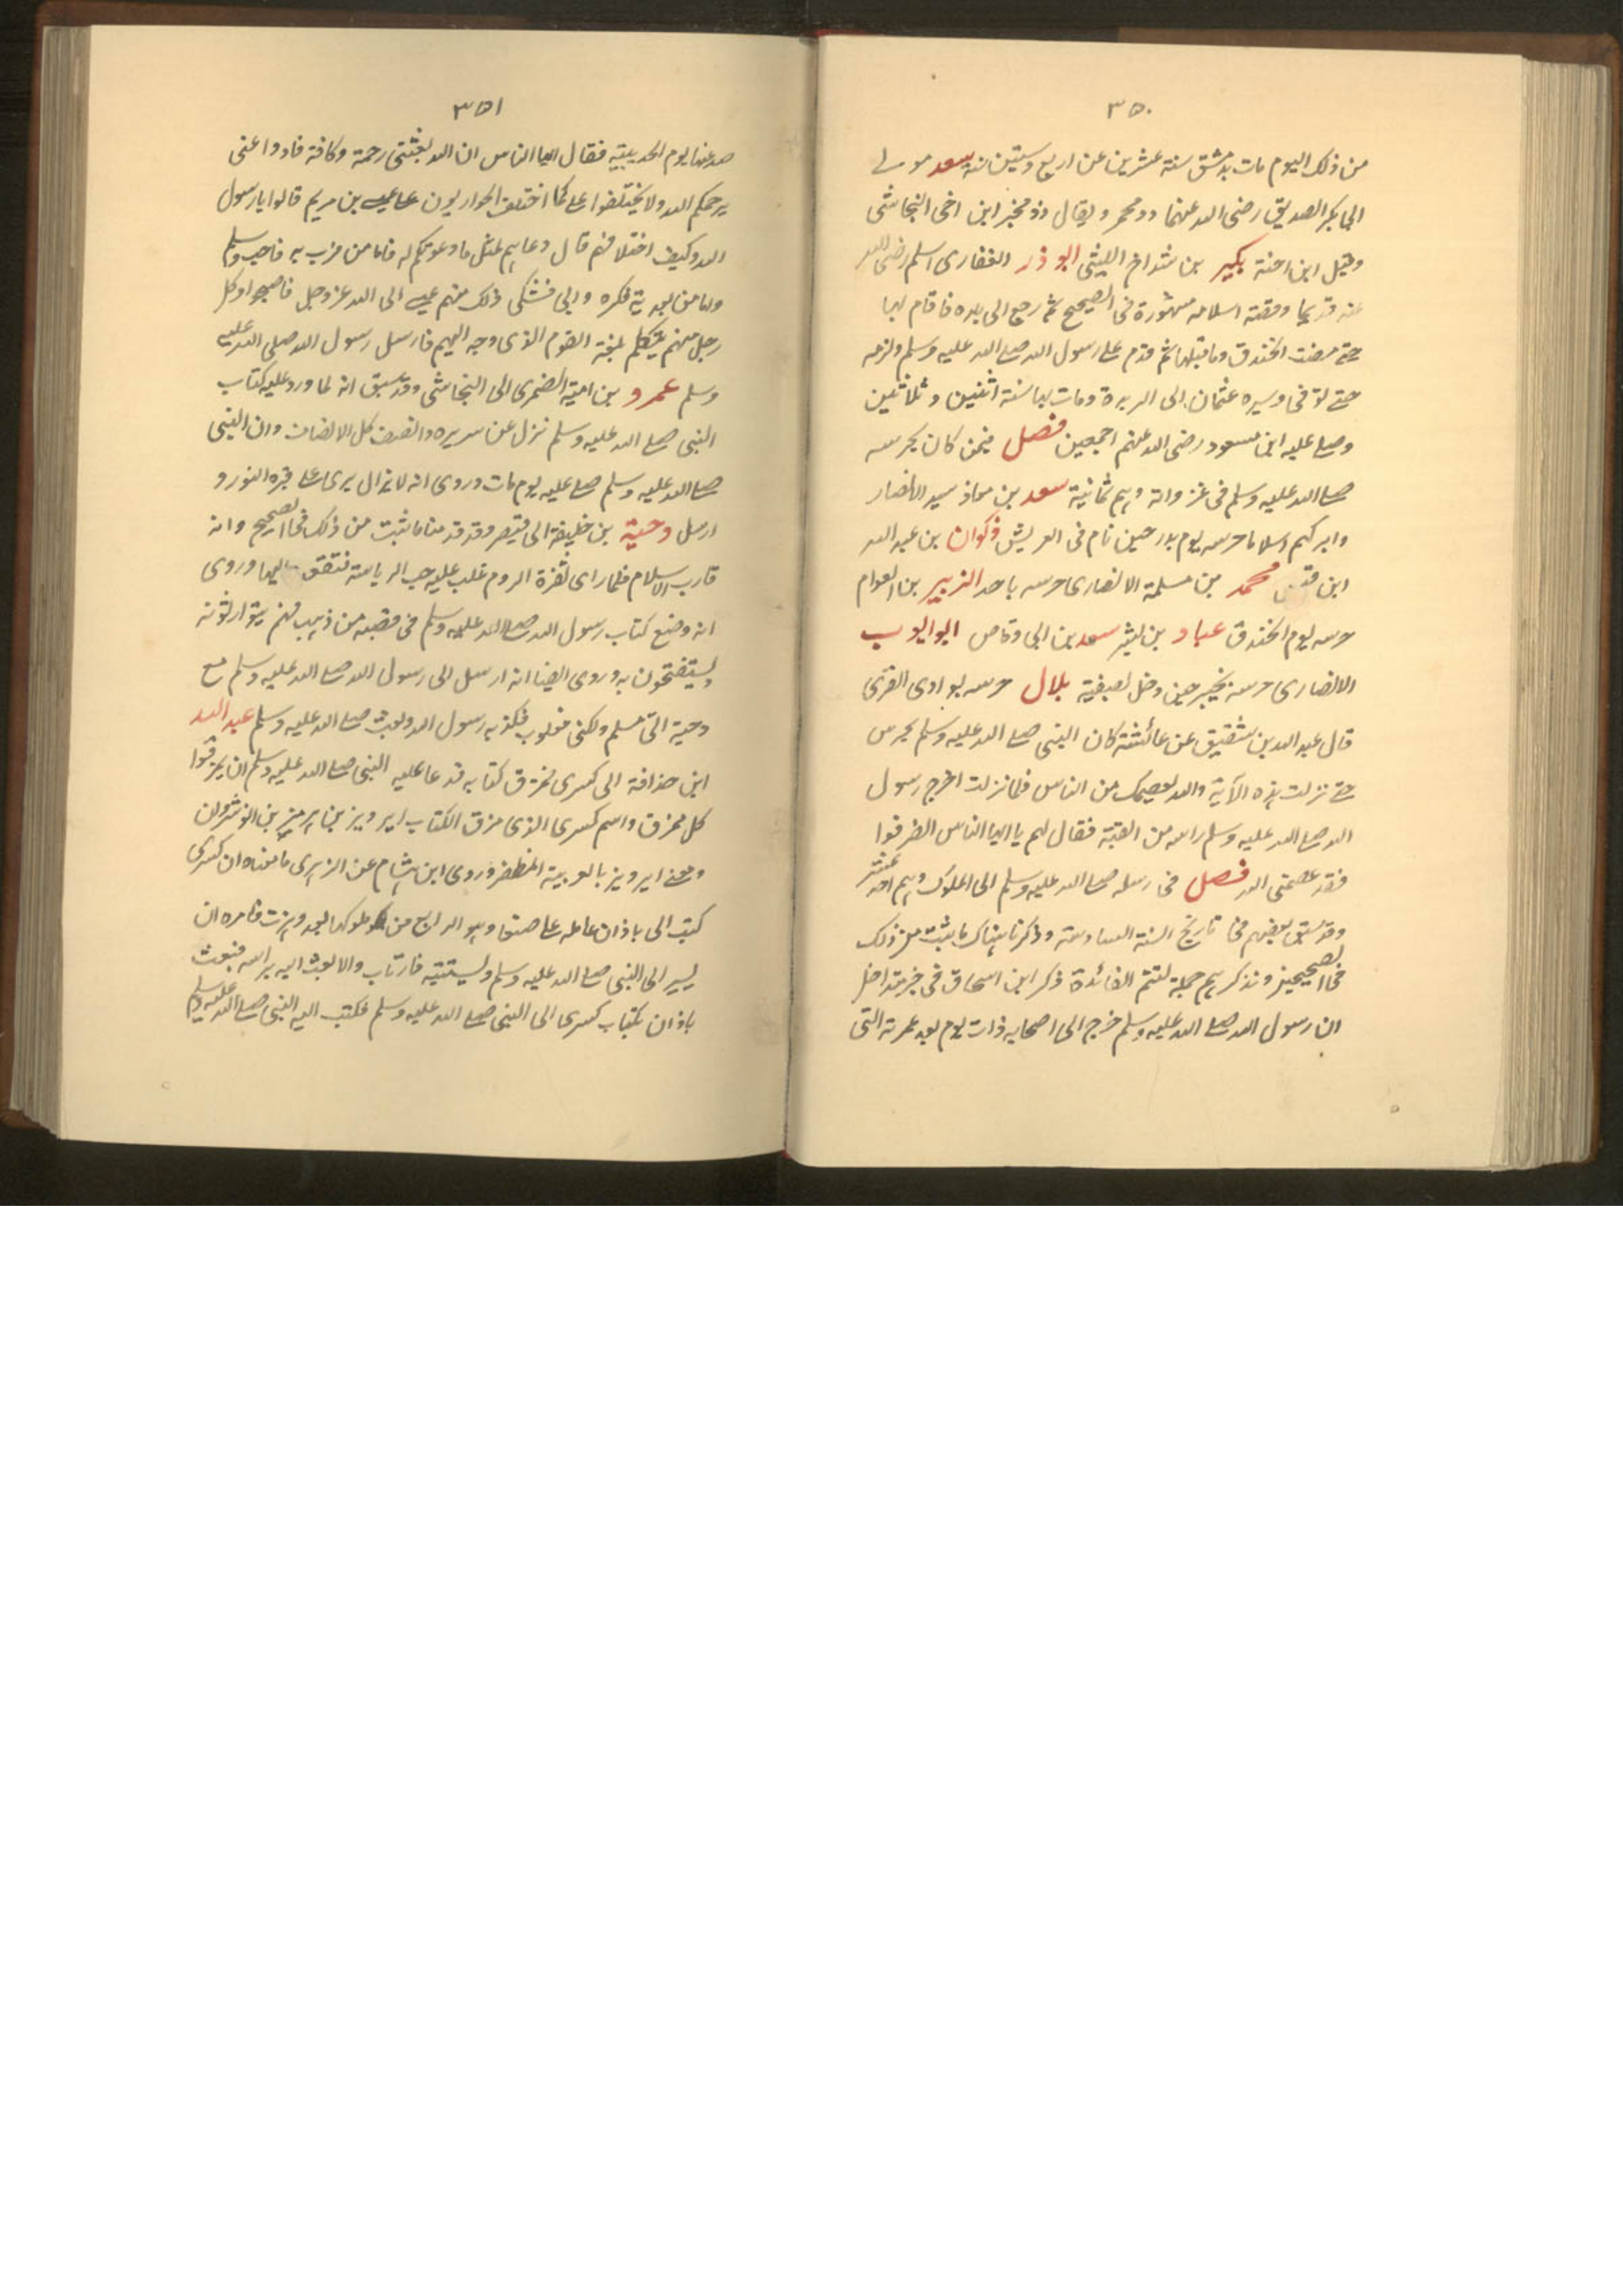 ٣٥٠
من ذلك اليوم مات بدمشق سنة عشرين عن اربع وستين سنة سعد مولے
ابى بكر الصديق رضى الله عنهما ذو مخمر ويقال ذو مخبر ابن اخى النجاشى
وقيل ابن اخته بكير بن شداخ الليثى ابو ذر الغفارى اسلم رضى الله
عنه قديما وقصة اسلامه مشهورة فى الصحيح ثم رجع الى بلده فاقام بها
حتے مضت الخندق وما قبلها ثم قدم علے رسول الله صلے الله عليه وسلم ولزمه
حتے توفى وسيره عثمان الى الربذة ومات بها سنة اثنين وثلاثين
وصلے عليه ابن مسعود رضى الله عنهم اجمعين فصل فيمن كان يحرسه
صلے الله عليه وسلم فى غزواته وهم ثمانية سعد بن معاذ سيد الانصار
وابركهم اسلاما حرسه يوم بدر حين نام فى العريش ذكوان بن عبد الله
ابن قيس محمد بن مسلمة الانصارى حرسه باحد الزبير بن العوام
حرسه يوم الخندق عباد بن بشر سعد بن ابى وقاص ابو ايوب
الانصارى حرسه بخيبر حين دخل بصفية بلال حرسه بوادى القرى
قال عبد الله بن شقيق عن عائشة كان النبى صلے الله عليه وسلم يحرس
حتے نزلت هذه الآية والله يعصمك من الناس فلما نزلت اخرج رسول
الله صلے الله عليه وسلم راسه من القبة فقال لهم يا ايها الناس انصرفوا
فقد عصمنى الله فصل فى رسله صلے الله عليه وسلم الى الملوك وهم احد عشر
وقد سبق بعضهم فى تاريخ السنة السادسة وذكرنا هناك ما يثبت من ذلك
فى الصحيحين ونذكرهم جملة لتتم الفائدة ذكر ابن اسحاق فى خبر متداخل
ان رسول الله صلے الله عليه وسلم خرج الى اصحابه ذات يوم بعد عمرته التى
٣٥١
صد عنها يوم الحديبية فقال ايها الناس ان الله بعثنى رحمة وكافة فادوا عنى
يرحمكم الله ولا تختلفوا علے كما اختلف الحواريون علے عيسے بن مريم قالوا يا رسول
الله وكيف اختلافهم قال دعاهم لمثل ما دعوتكم له فاما من قرب به فاحب وسلم
واما من بعد به فكره وابى فشكى ذلك منهم عيسے الى الله عز وجل فاصبحوا وكل
رجل منهم يتكلم بلغة القوم الذى وجه اليهم فارسل رسول الله صلى الله عليه
وسلم عمرو بن امية الضمرى الى النجاشى وقد سبق انه لما ورد عليه كتاب
النبى صلے الله عليه وسلم نزل عن سريره وانصف كل الانصاف وان النبى
صلے الله عليه وسلم صلے عليه يوم مات وروى انه لا يزال يرى علے قبره النور و
ارسل دحية بن خليفة الى قيصر وقد قدمنا ما ثبت من ذلك فى الصحيح وانه
قارب الاسلام فلما راى نفرة الروم غلب عليه حب الرياسة فشفق عليها وروى
انه وضع كتاب رسول الله صلے الله عليه وسلم فى قصبة من ذهب فهم يتوارثونه
ويستفتحون به وروى ايضا انه ارسل الى رسول الله صلے الله عليه وسلم مع
دحية انى مسلم ولكنى مغلوب فكذبه رسول الله وبعث صلے الله عليه وسلم عبد الله
ابن حذافة الى كسرى فمزق كتابه فدعا عليه النبى صلے الله عليه وسلم ان يمزقوا
كل ممزق واسم كسرى الذى مزق الكتاب ابرويز بن هرمز بن انوشروان
ومعنى ابرويز بالعربية المظفر وروى ابن هشام عن الزهرى ما معناه ان كسرى
كتب الى باذان عامله علے صنعا وهو الرابع من ملوكها بعد وهزر فامره ان
يسير الى النبى صلے الله عليه وسلم ويستتيبه فان تاب والا بعث اليه براسه فبعث
باذان بكتاب كسرى الى النبى صلے الله عليه وسلم فكتب اليه النبى صلے الله عليه وسلم